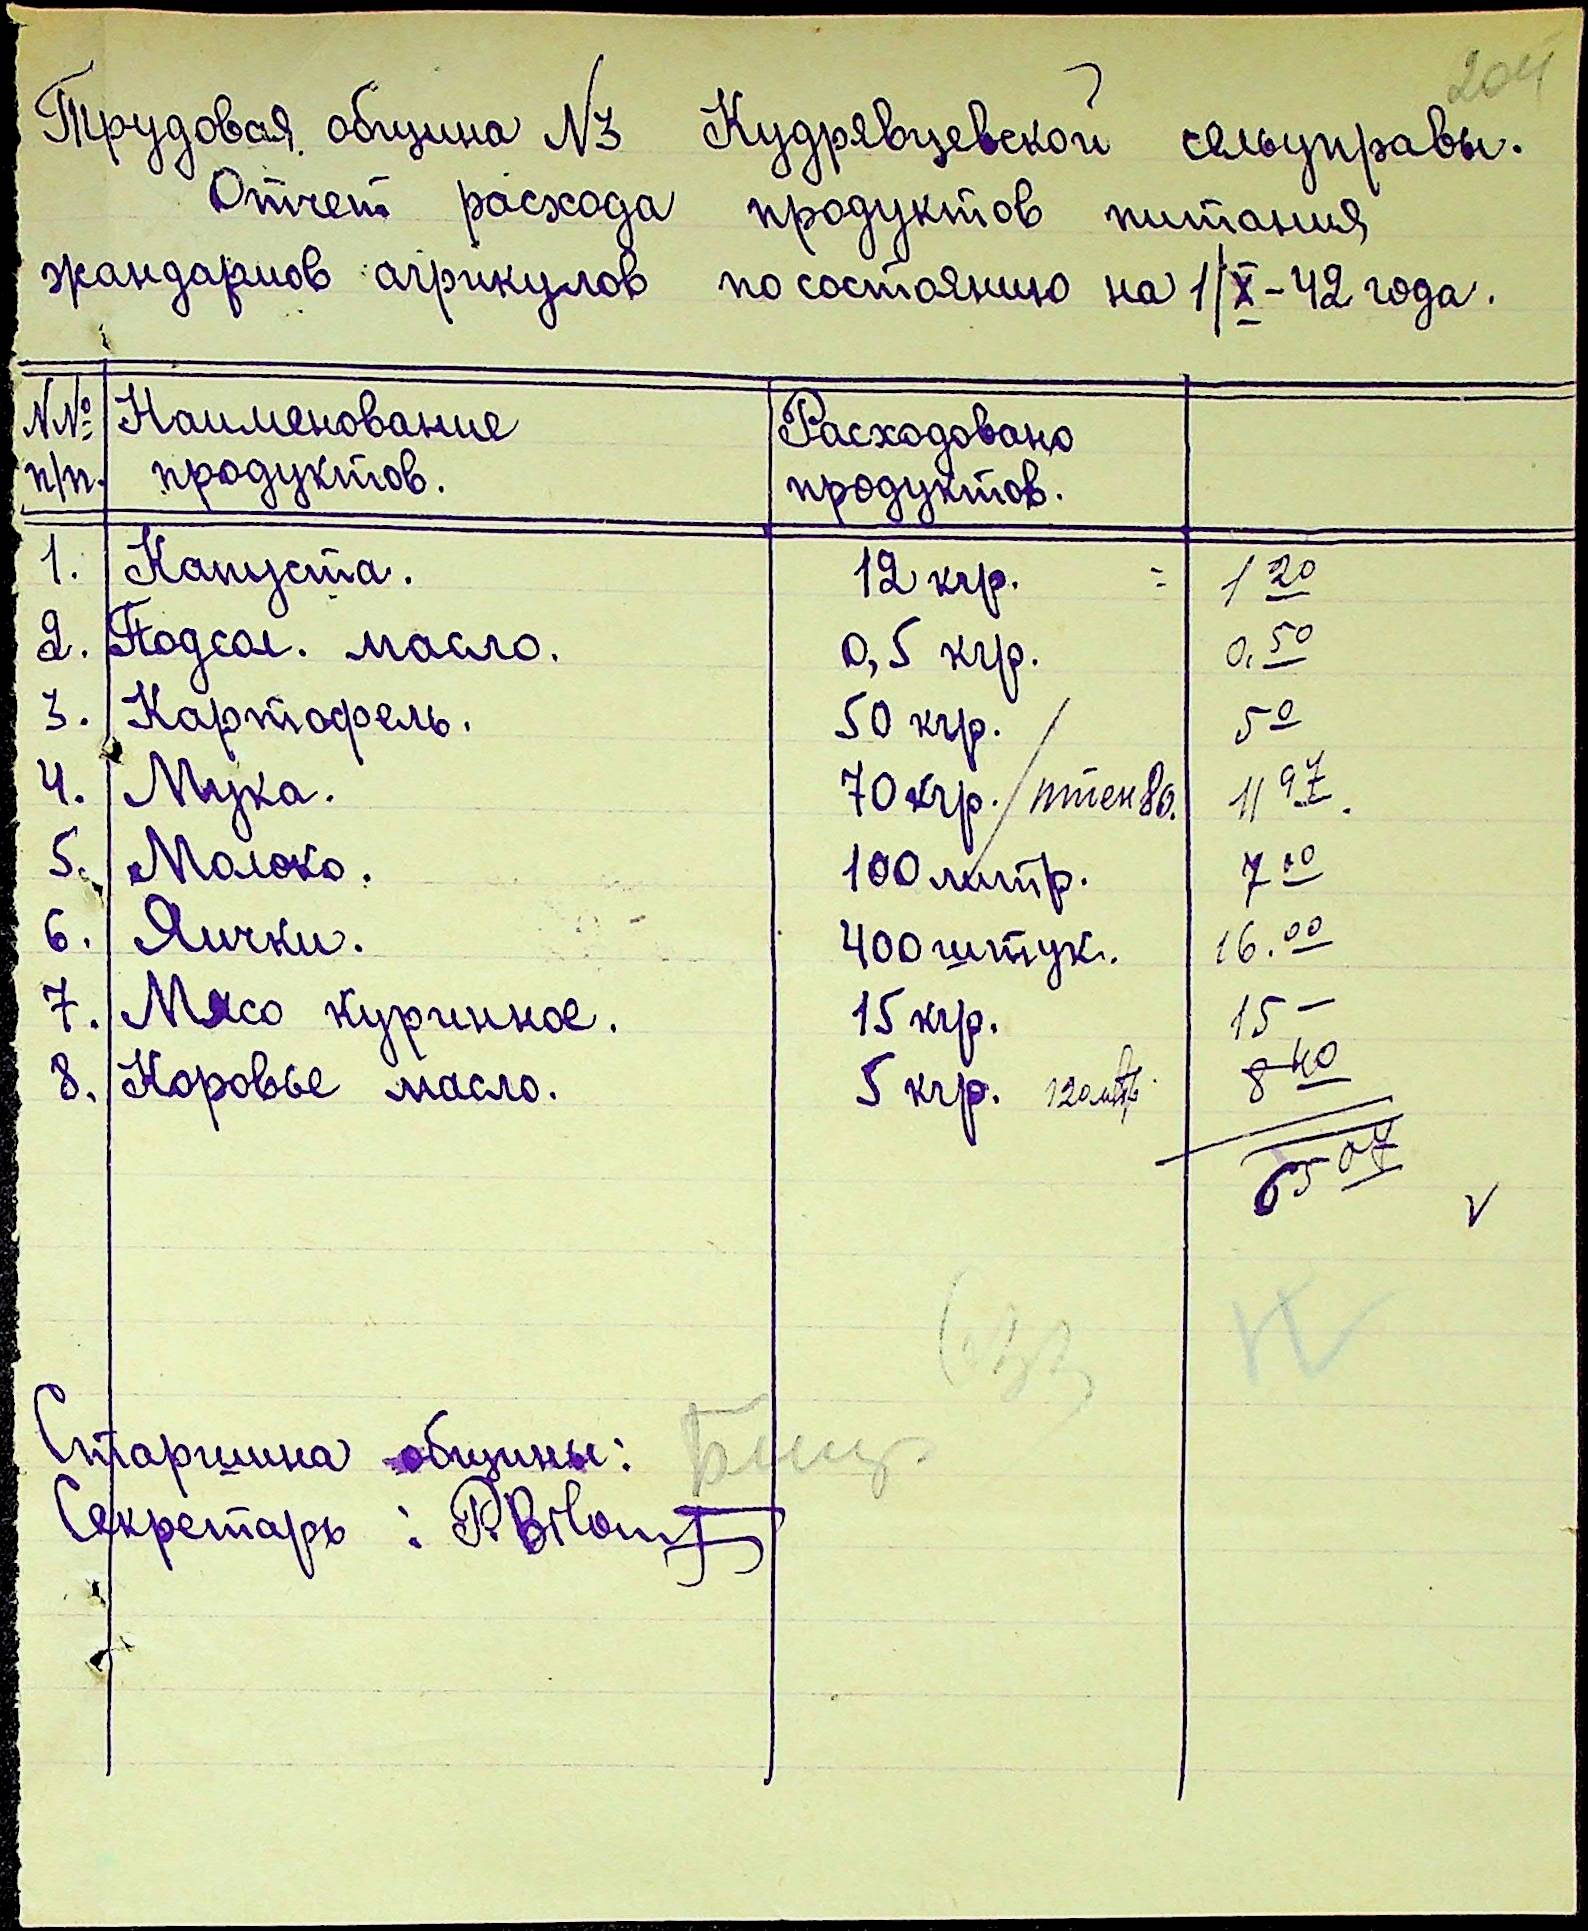 204
Трудовая община N3 Кудрявцевской сельуправы.
Отчет расхода продуктов питания
жандармов агрикулов по состоянию на 1/X-42 года.
NNº п/п. Наименование продуктов. Расходовано продуктов.
1. Капуста. 12 кгр. = 1 20
2. Подсол. масло. 0,5 кгр. 0.50
3. Картофель. 50 кгр. 5 0
4. Мука. 70 кгр. / 11 97.
5. Молоко. 100 литр. 7 00
6. Яички. 400 штук. 16.00
7. Мясо куринное. 15 кгр. 15 –
8. Коровье масло. 5 кгр. 120 литр. 8 40
65 07
V
Старшина общины:
Секретарь :